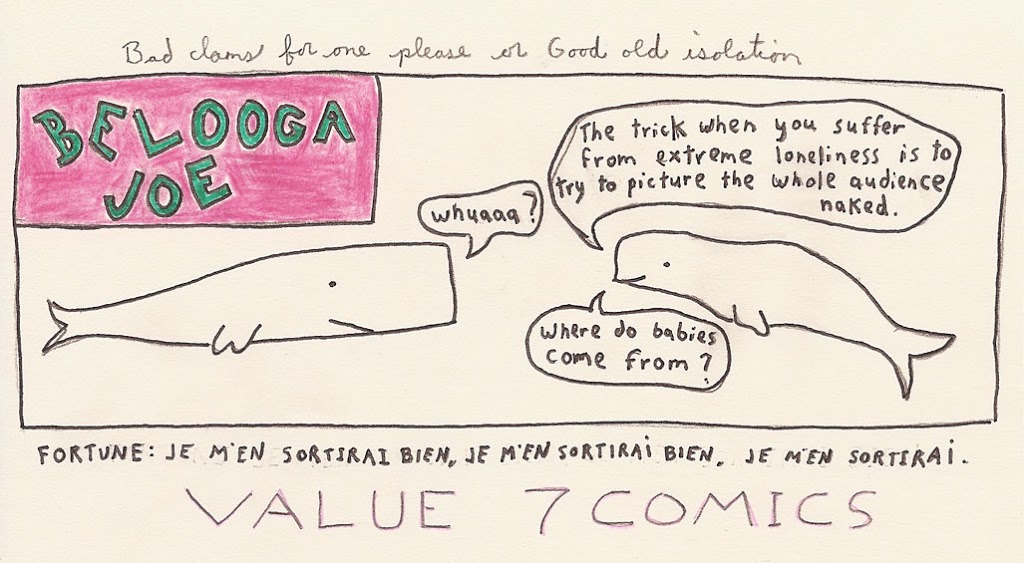 Bad clams for one please or Good old isolation
BELOOGA
JOE
whuaaa?
The trick when you suffer
from extreme loneliness is to
try to picture the whole audience
naked.
where do babies
come from?
FORTUNE: JE M'EN SORTIRAI BIEN, JE M'EN SORTIRAI BIEN. JE M'EN SORTIRAI.
VALUE 7 COMICS